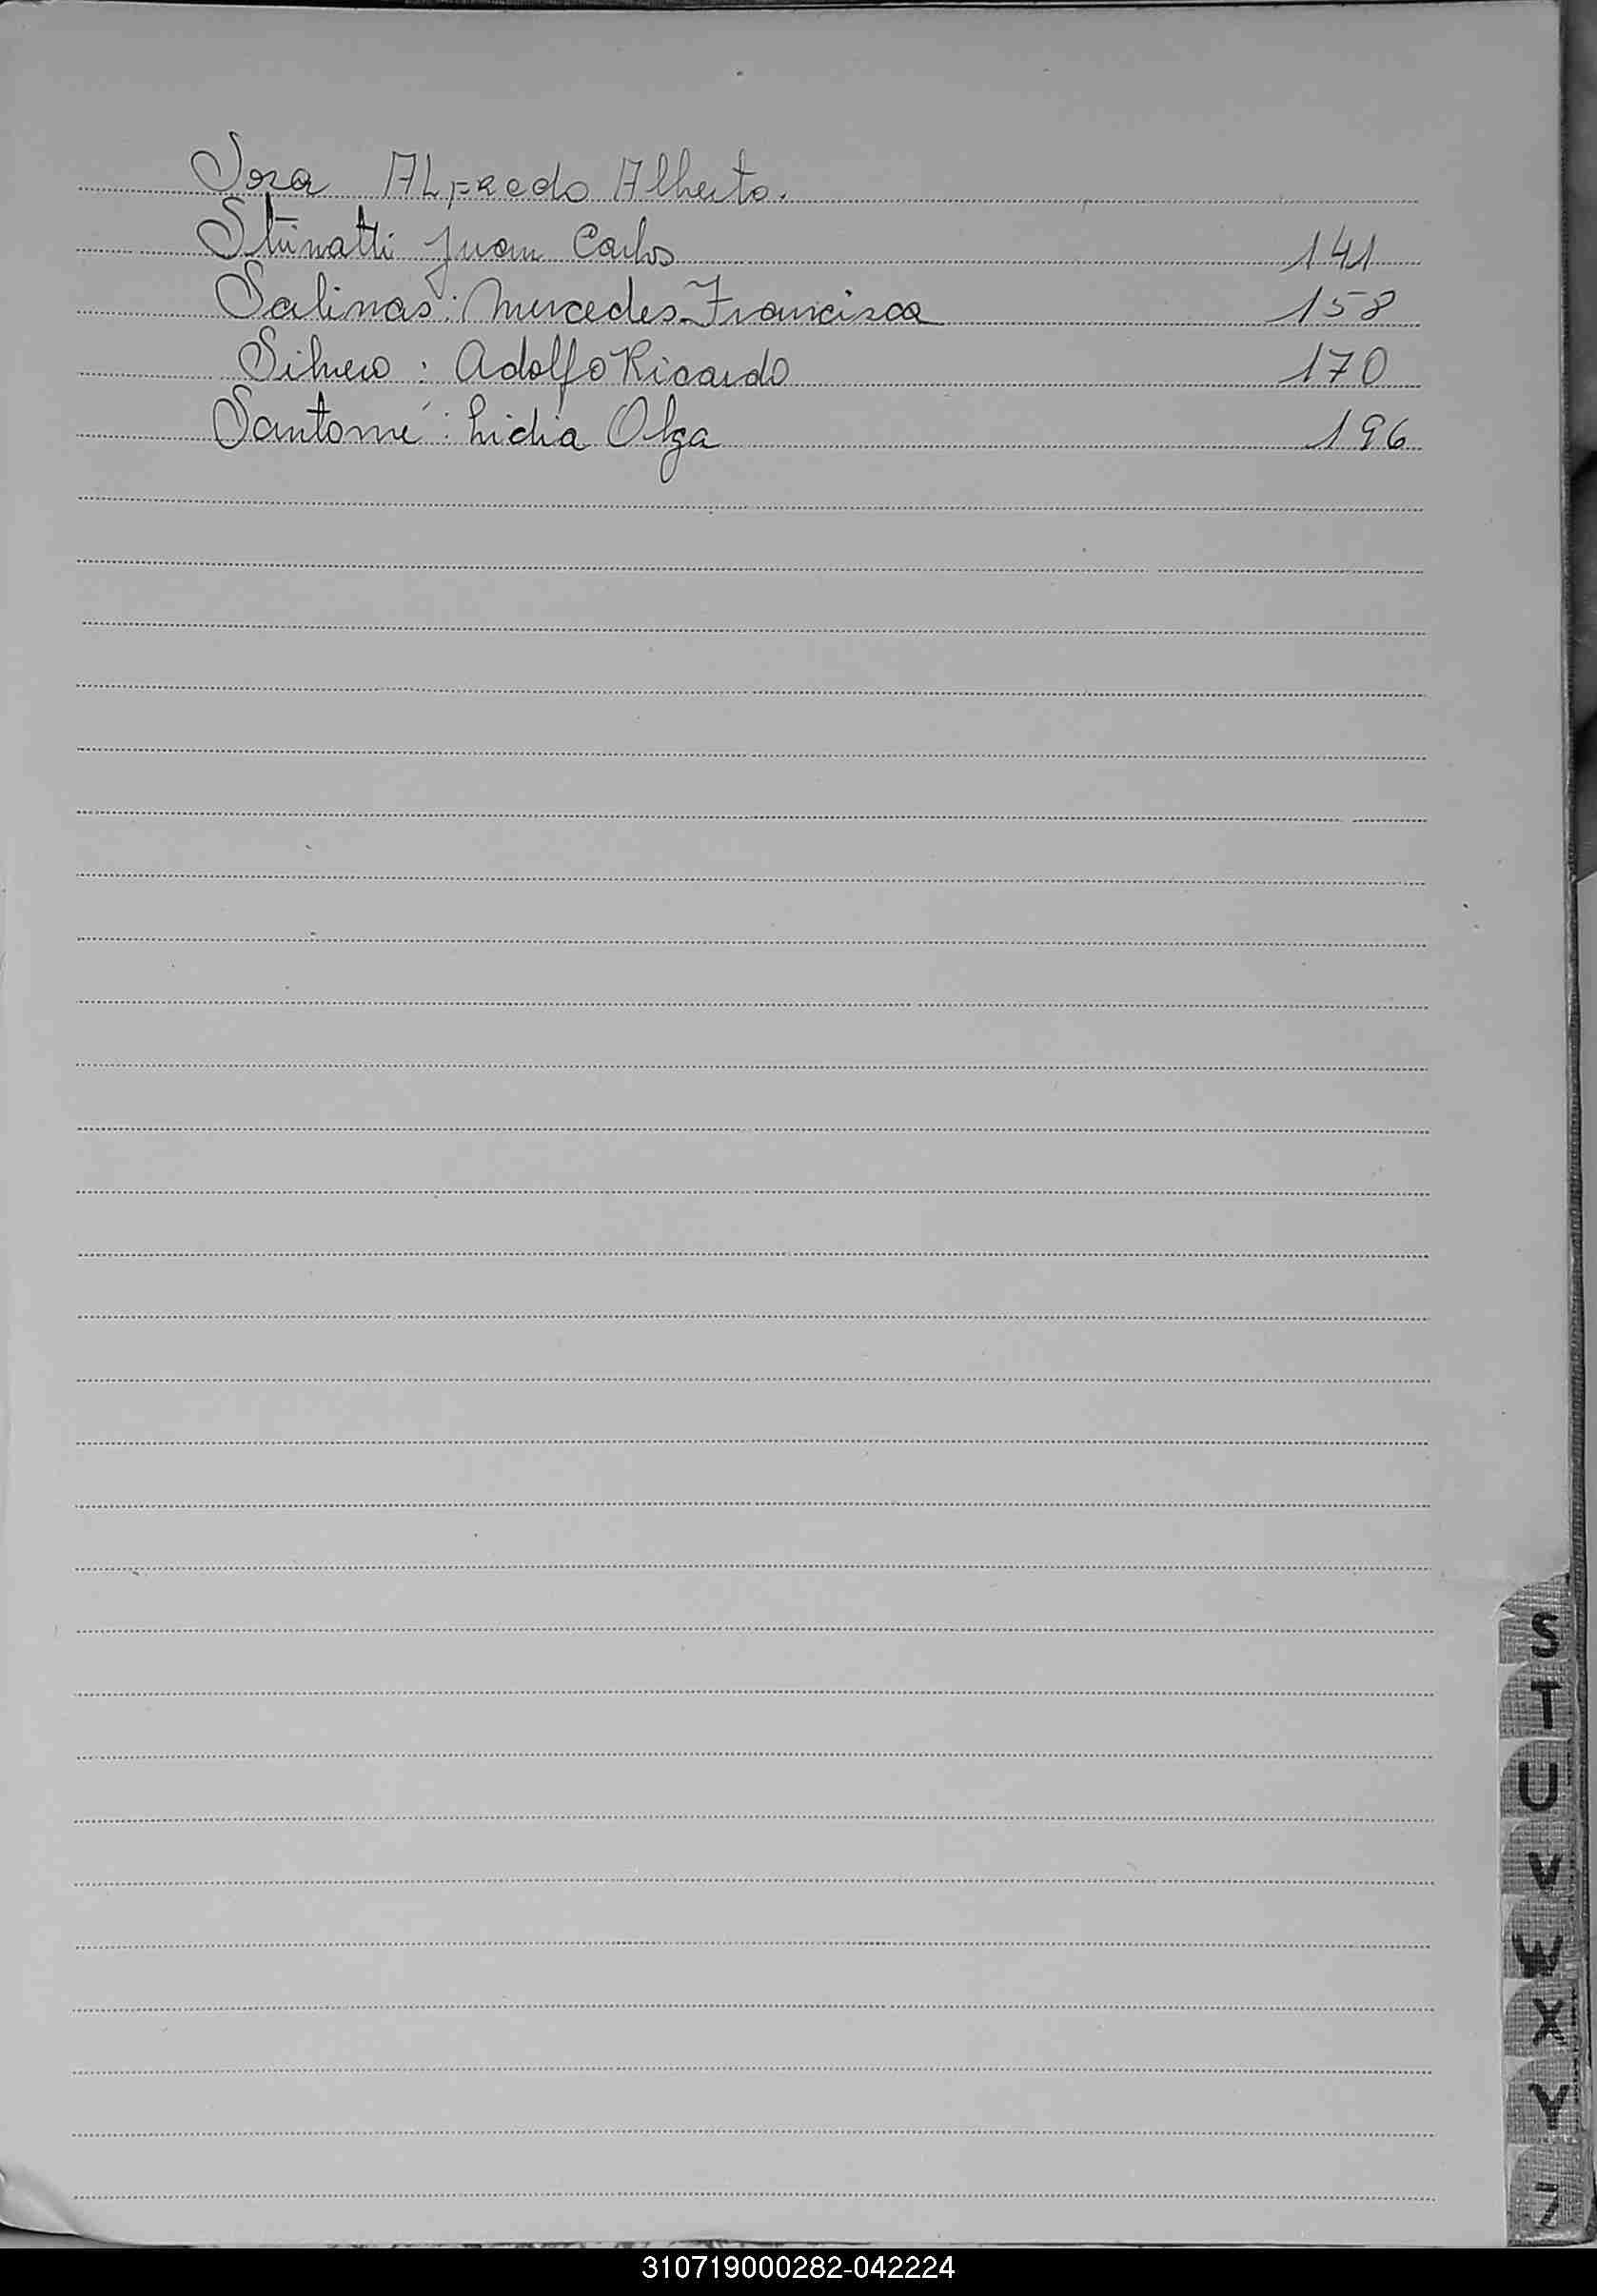 Sosa Alfredo Alberto.
Juan Carlos 141
Salinas: Mercedes Francisca 158
Silvero: Adolfo Ricardo 170
Santomé: Lidia Olga 196
S
T
U
V
W
X
Y
Z
310719000282-042224